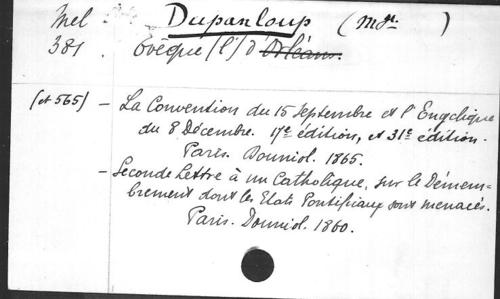 Mel Dupanloup (Mgr. )
381. Evêque (l') d'Orléans.
(et 565) - La Convention du 15 Septembre et l'Encyclique
du 8 Décembre. 17e édition, et 31e édition.
Paris. Douniol. 1865.
- Seconde Lettre à un Catholique, sur le Démem-
brement dont les Etats Pontificaux sont menacés.
Paris. Douniol. 1860.